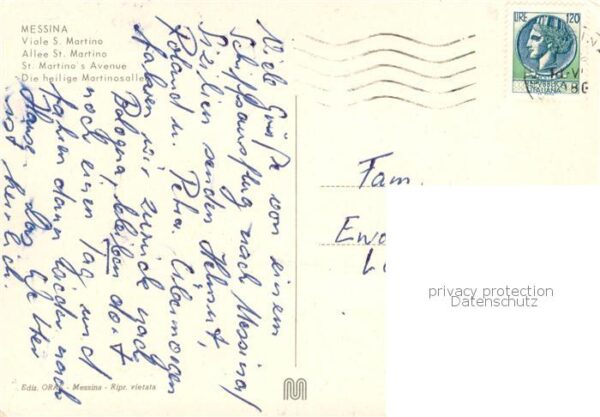 MESSINA
Viale S. Martino
Allee St. Martino
St. Martino's Avenue
Die heilige Martinosallee
LIRE 120
Viele Grüße von einem
Schiffsausflug nach Messina/
Sizilien senden Helmut,
Roland u. Petra. Übermorgen
fahren wir zurück nach
Bologna, bleiben dort
noch einen Tag und
fahren dann wieder nach
Hause. Das Wetter
ist herrlich.
Fam.
privacy protection
Datenschutz
Messina - Ripr. vietata